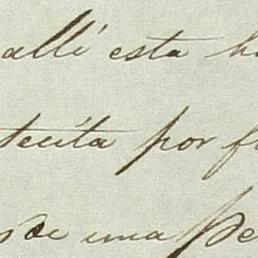 allé esta h
tecita por f
de una Pe